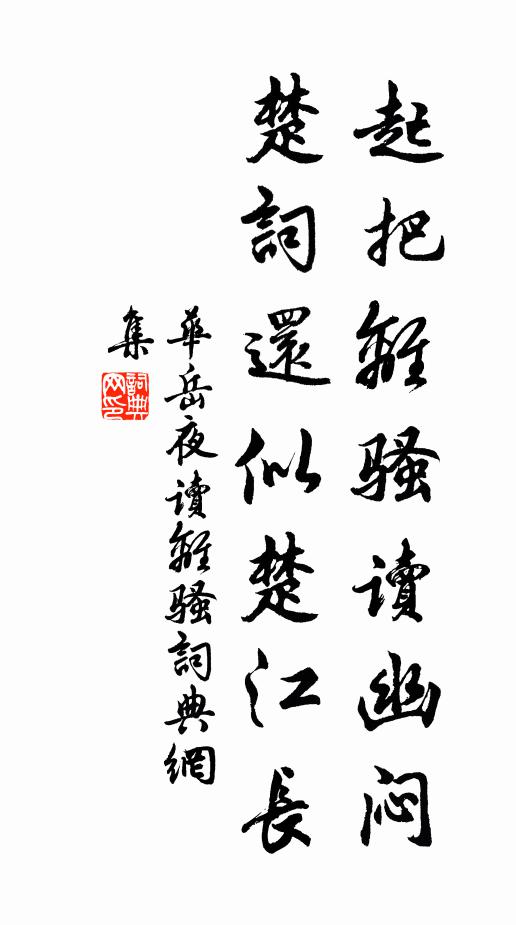 起把離騷讀幽闷
楚詞還似楚江長
華岳夜讀離騷詞典網
集
詞典
网印